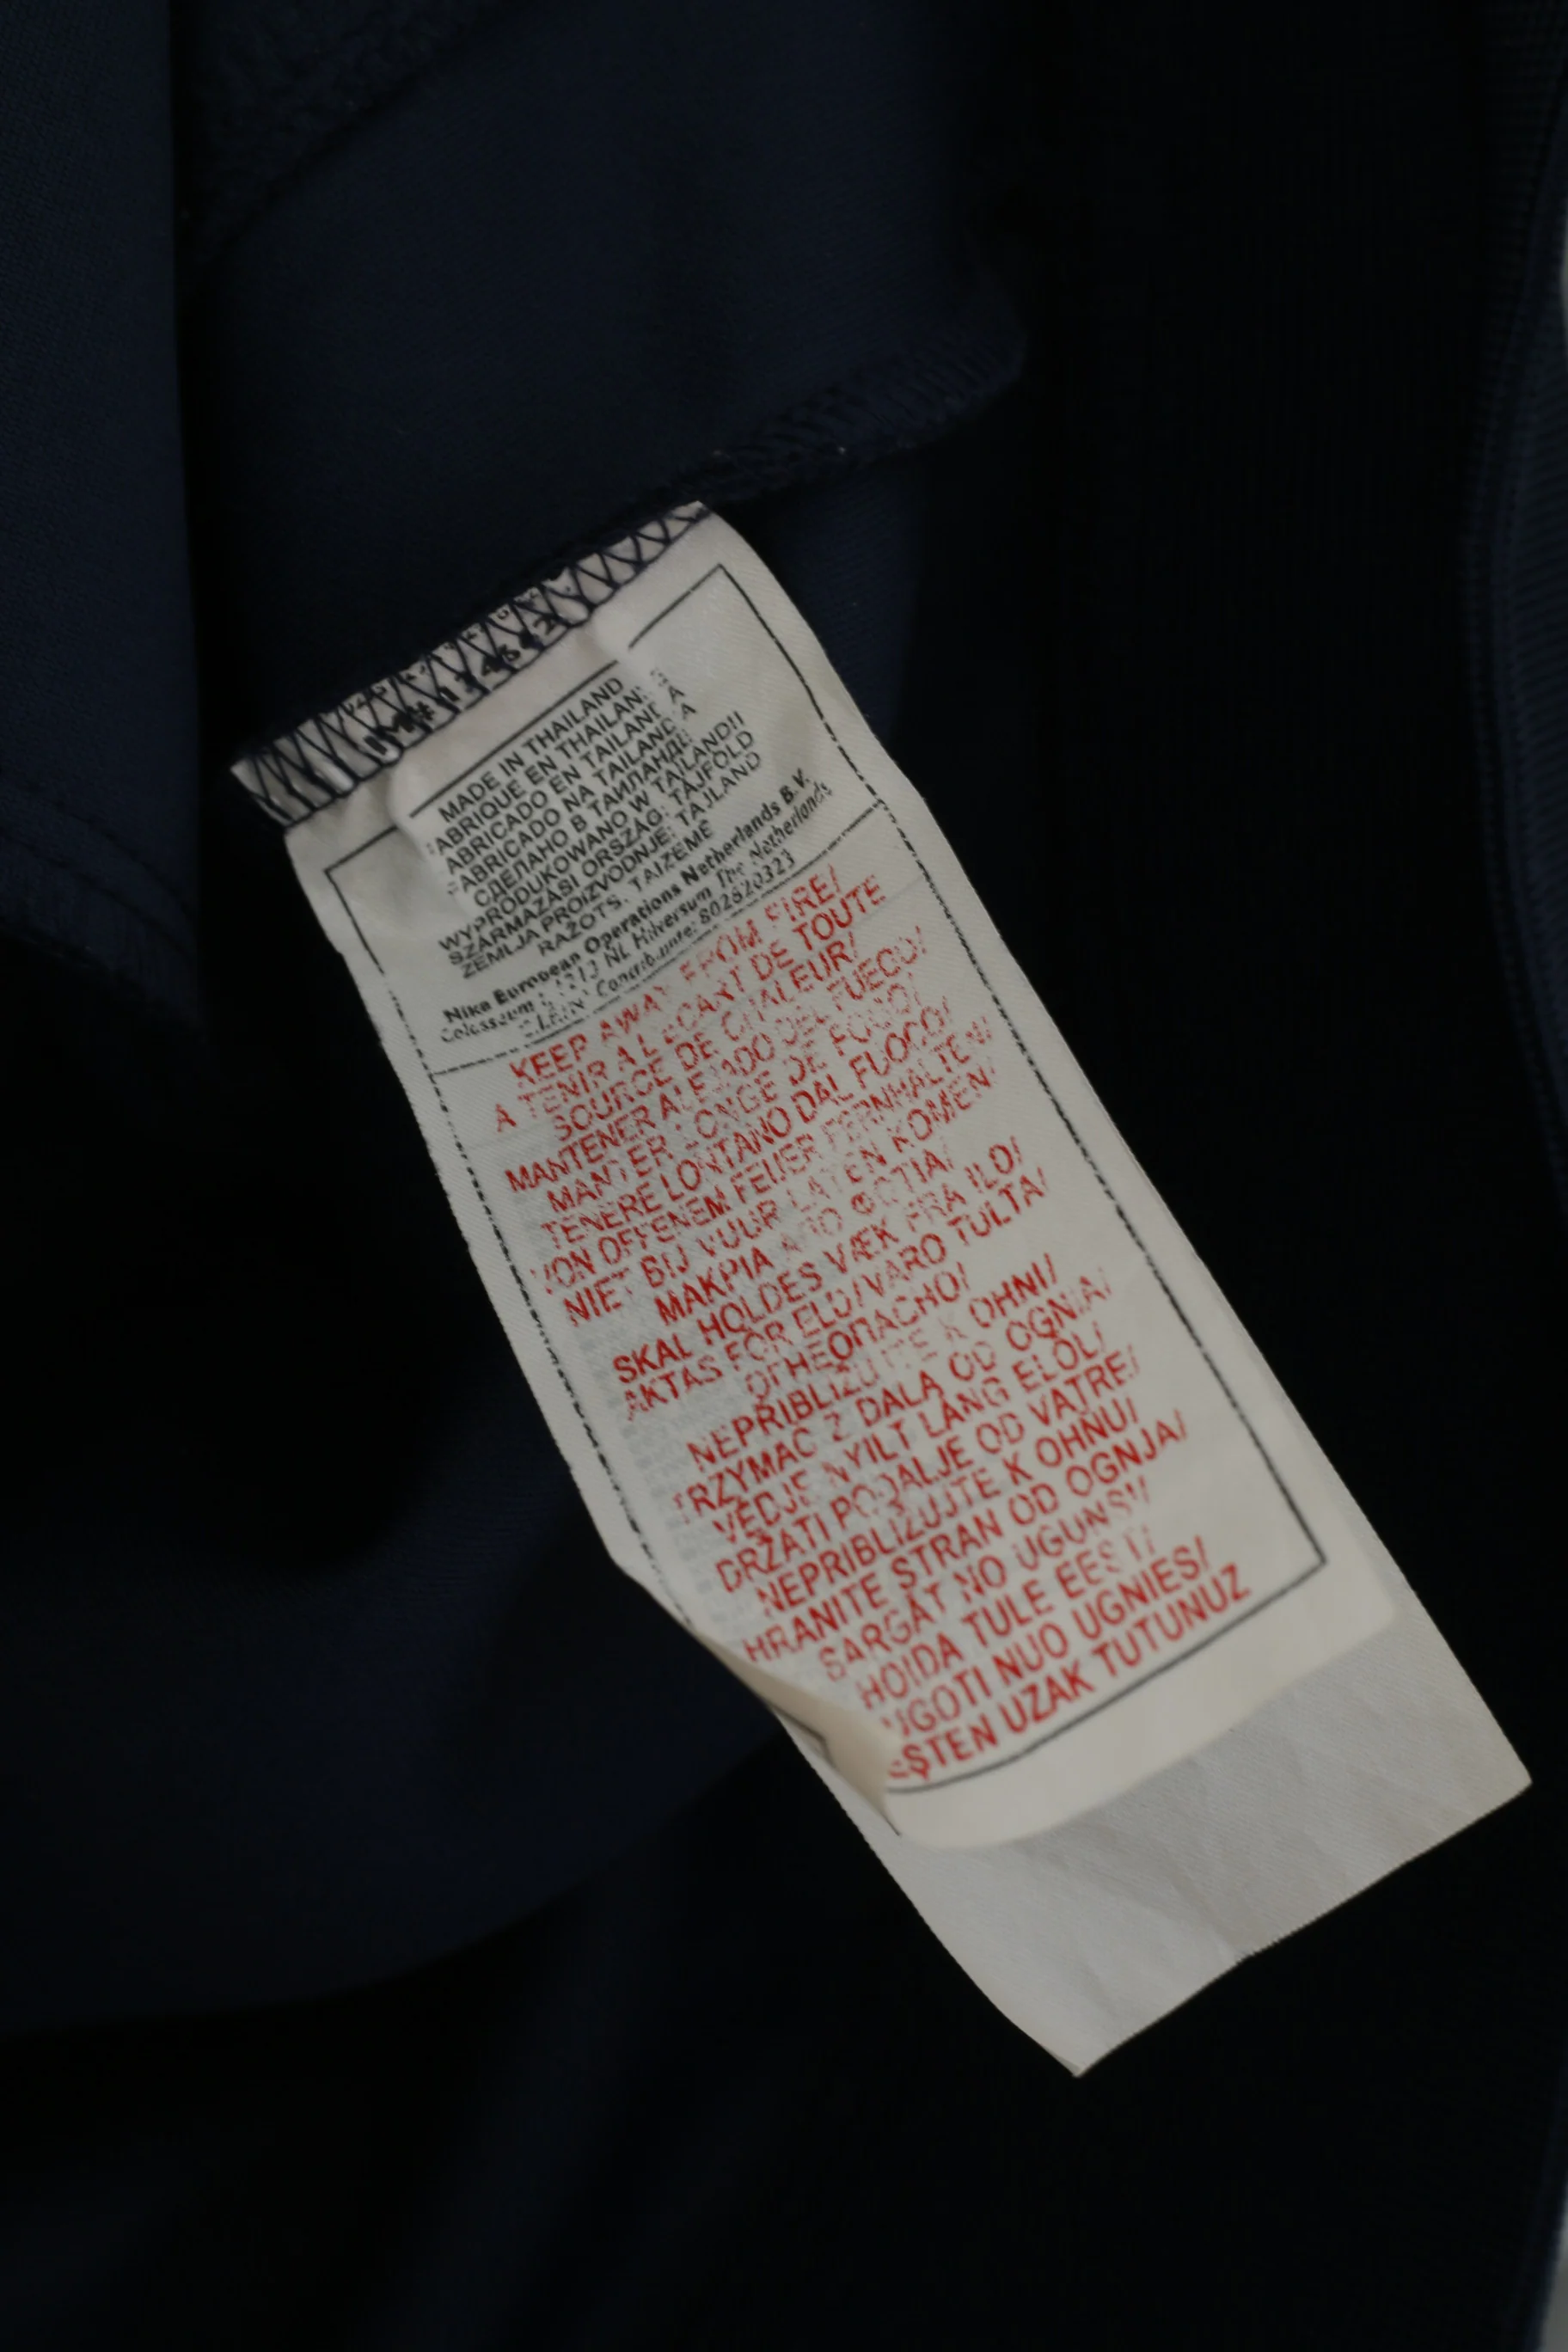 MADE IN THAILAND
FABRIQUE EN THAILANDE
FABRICADO EN TAILANDIA
FABRICADO NA TAILANDIA
СДЕЛАНО В ТАИЛАНДЕ
WYPRODUKOWANO W TAJLANDII
SZÁRMAZÁSI ORSZÁG: TAJFÖLD
ZEMLJA PROIZVODNJE: TAJLAND
RAŽOTS. TAIZEMĒ
Nike European Operations Netherlands B.V.
Colosseum 1, 1213 NL Hilversum The Netherlands
Contribuinte: 802620323
KEEP AWAY FROM FIRE/
A TENIR A L ECART DE TOUTE
SOURCE DE CHALEUR/
MANTENER ALEJADO DEL FUEGO/
MANTER LONGE DE FOGO/
TENERE LONTANO DAL FUOCO/
VON OFFENEM FEUER FERNHALTEN/
NIET BIJ VUUR LATEN KOMEN/
ΜΑΚΡΙΑ ΑΠΟ ΦΩΤΙΑ/
SKAL HOLDES VÆK FRA ILD/
AKTAS FÖR ELD/VARO TULTA/
ОГНЕОПАСНО/
NEPŘIBLIŽUJTE K OHNI/
TRZYMAĆ Z DALA OD OGNIA/
VÉDJE NYÍLT LÁNG ELŐL/
DRŽATI PODALJE OD VATRE/
NEPRIBLIŽUJTE K OHŇU/
HRANITE STRAN OD OGNJA/
SARGĀT NO UGUNS/
HOIDA TULE EEST/
SAUGOTI NUO UGNIES/
ATEŞTEN UZAK TUTUNUZ